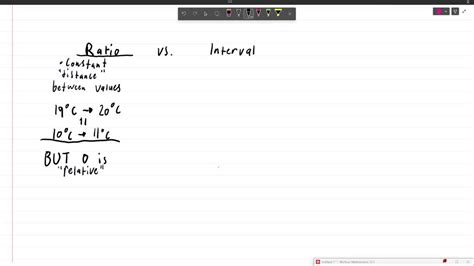 Ratio vs. Interval
• Constant
"distance"
between values
19°C → 20°C
=
10°C → 11°C
BUT 0 is
"relative"